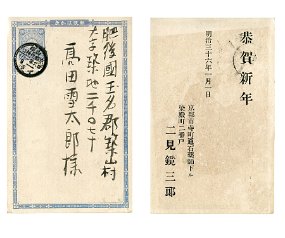 肥後國玉名郡築山村
大字築地二千〇七十
高田雪太郎様
恭賀新年
明治三十六年一月一日
京都市寺町通石薬師下ル
染殿町二番戸
二見鏡三郎